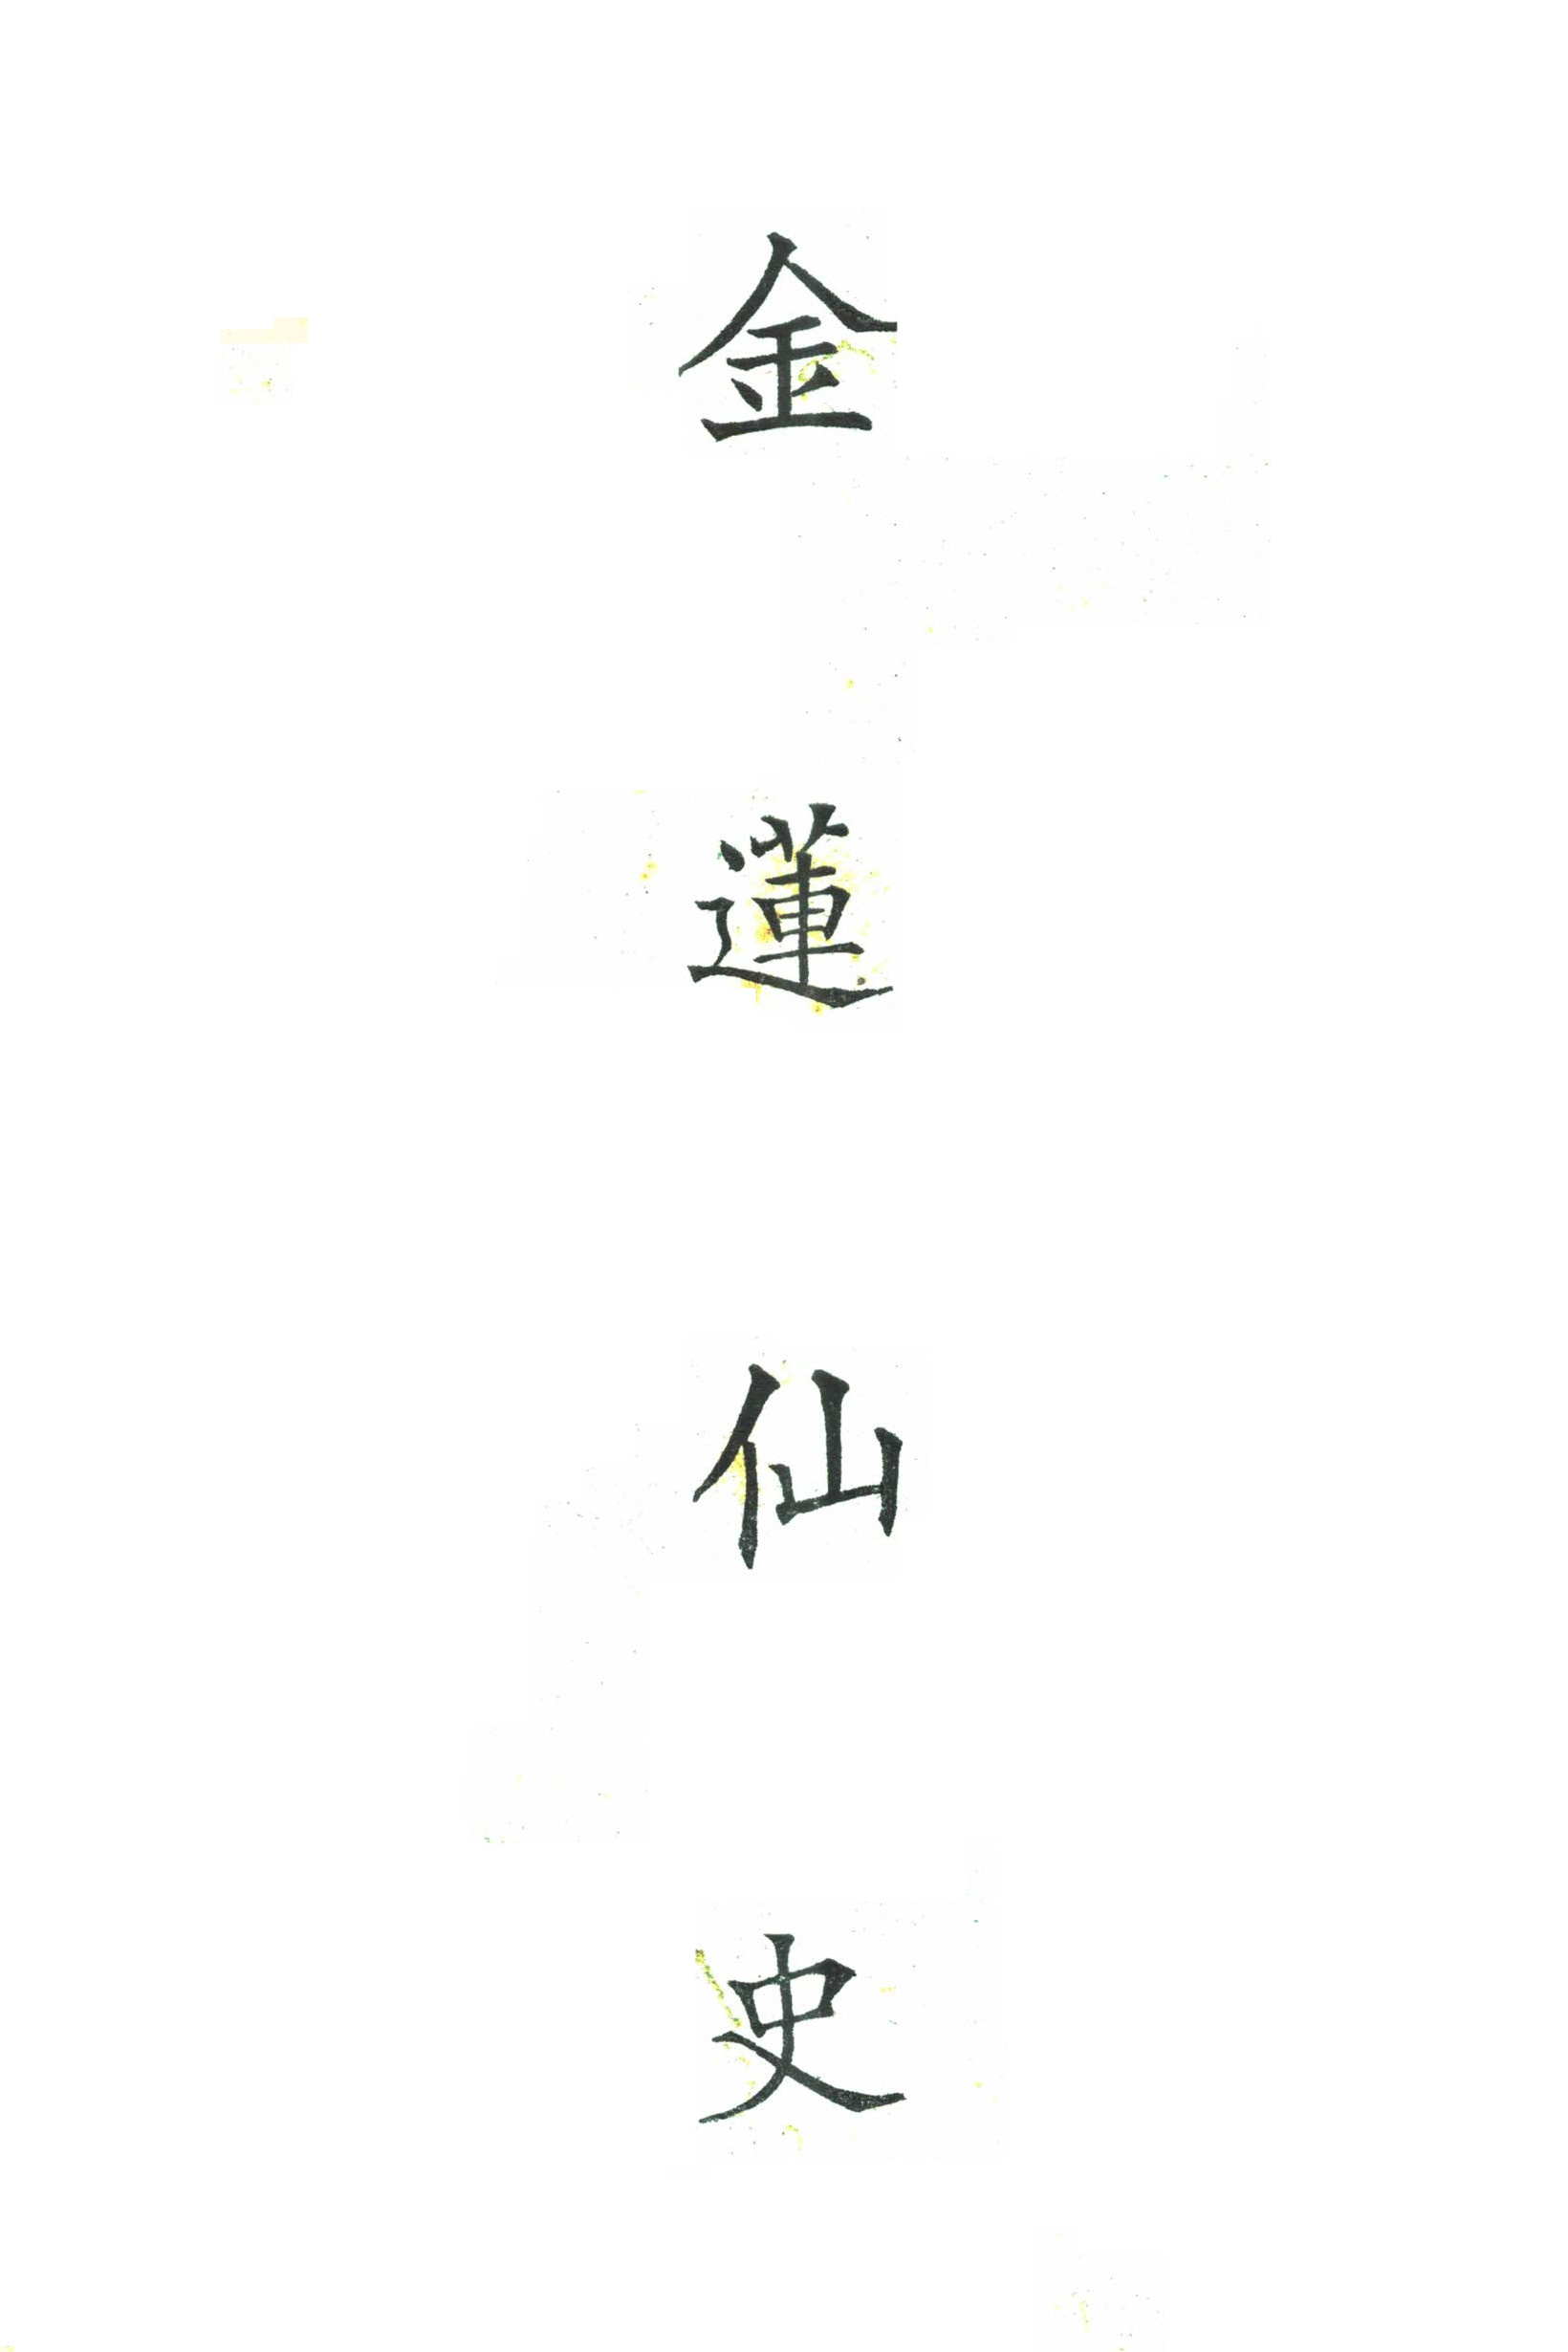 金蓮仙史